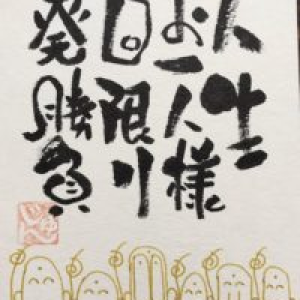 人生
お一人様
回限り
発勝負